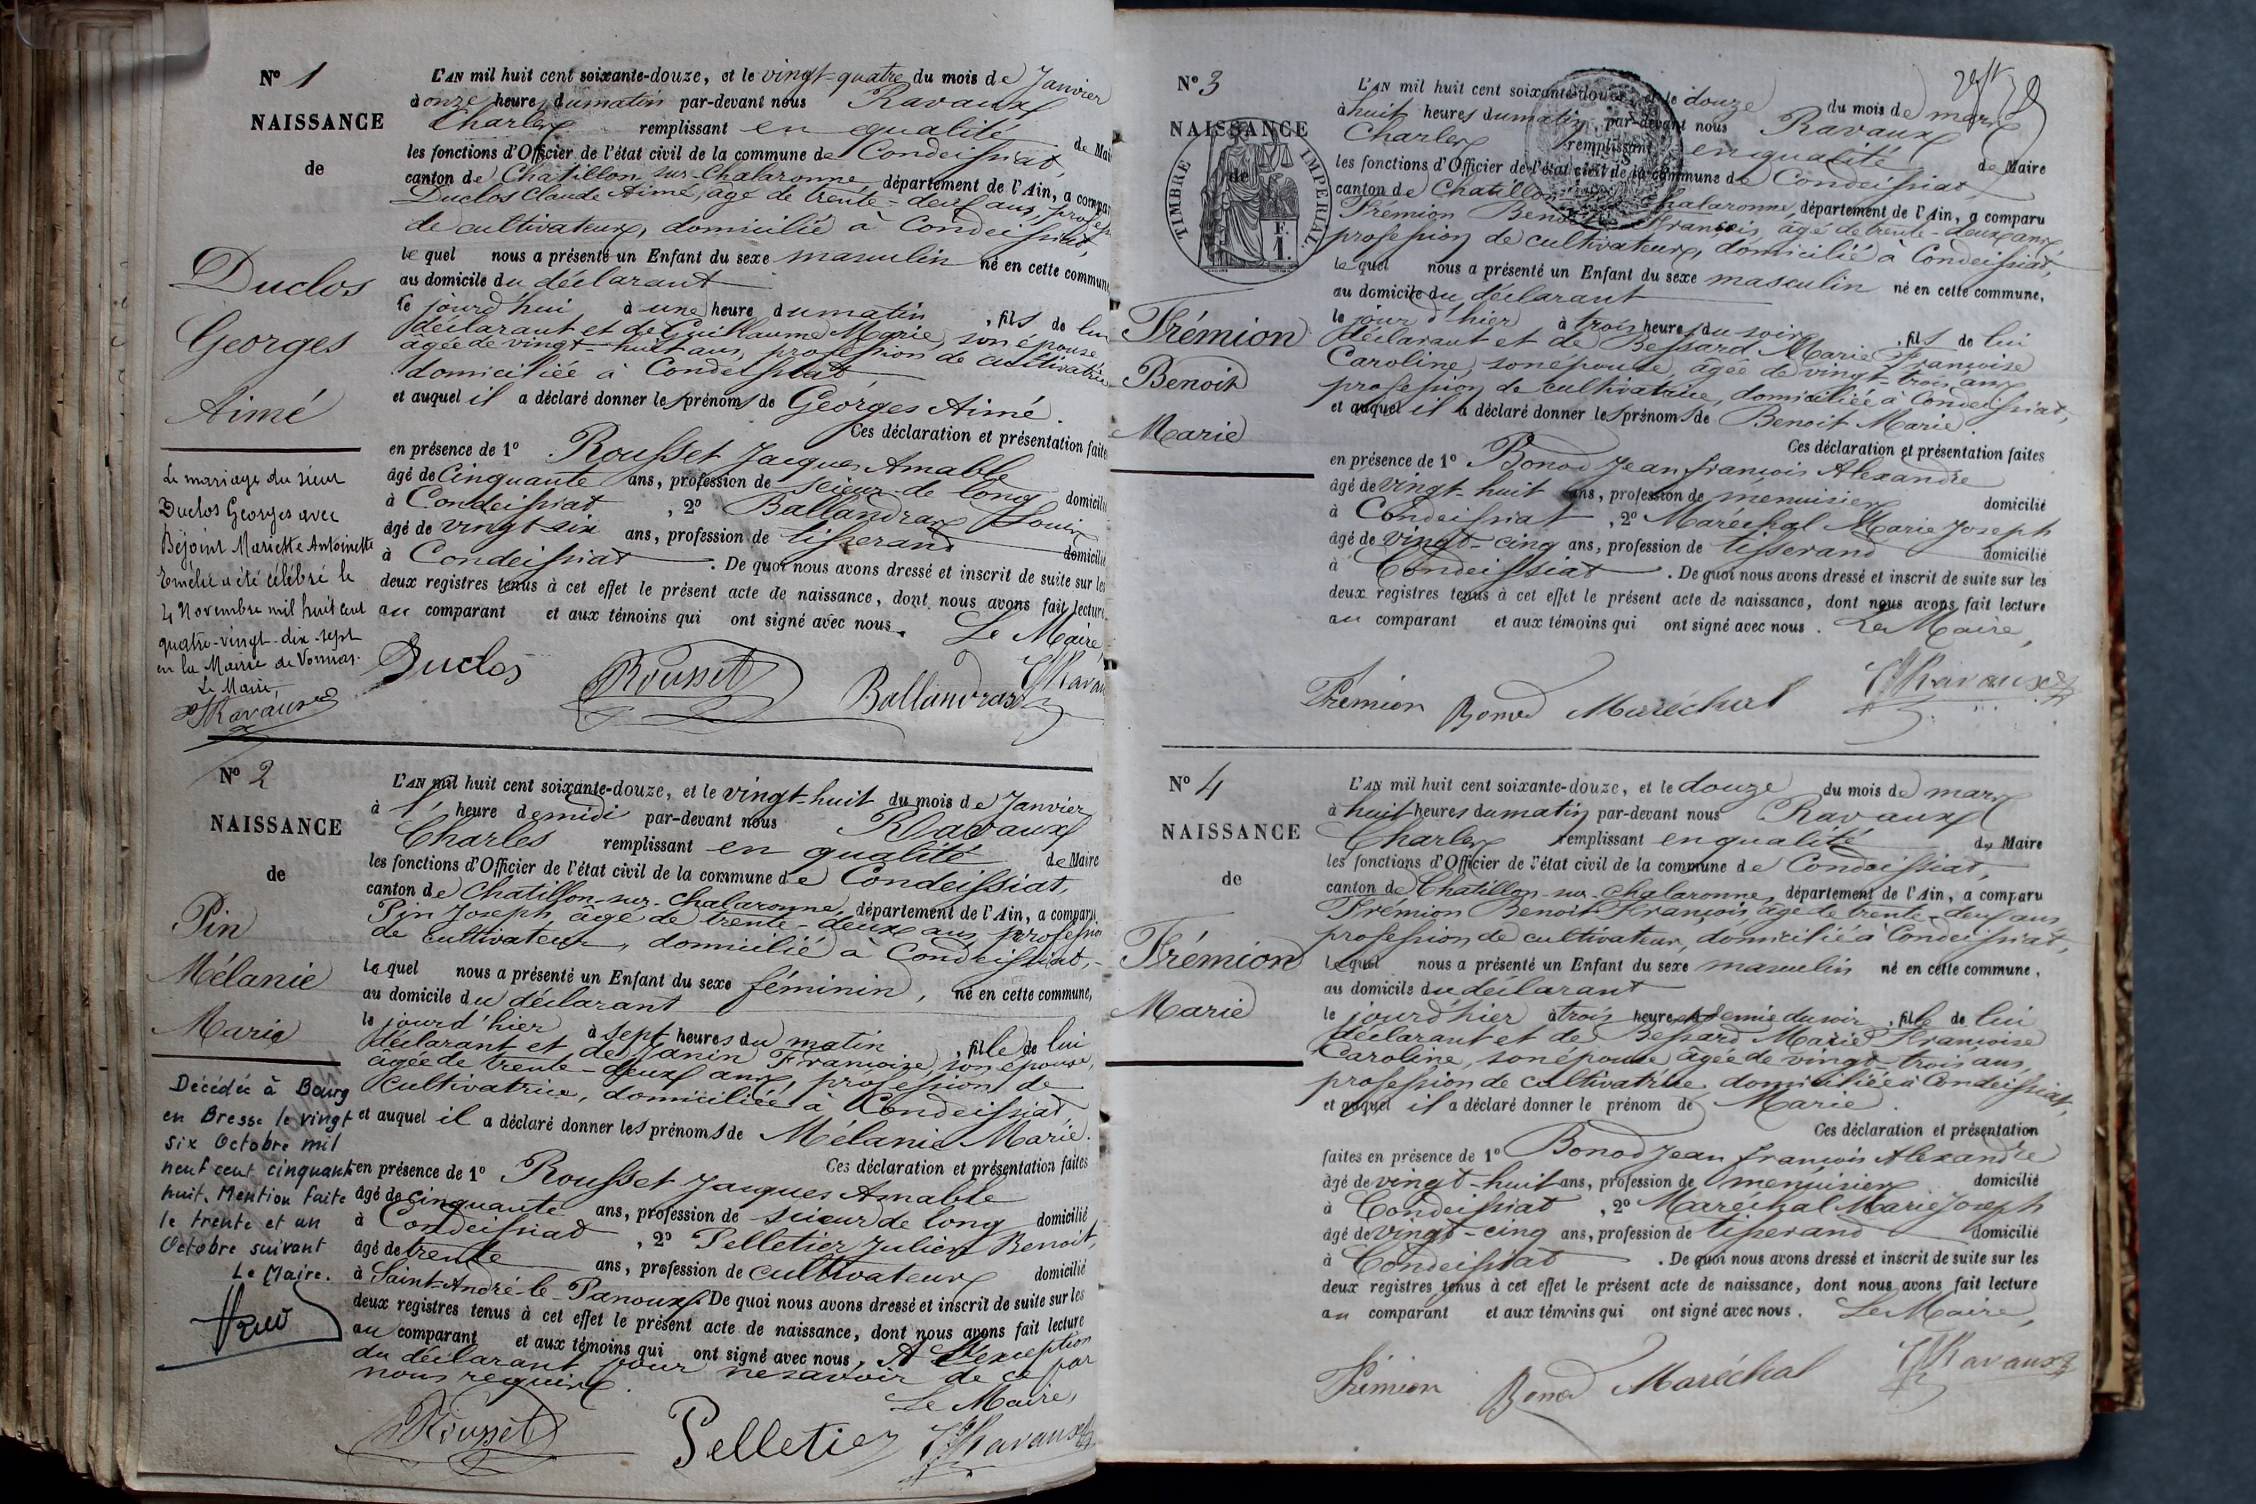 N° 1
NAISSANCE
de
Duclos
Georges
Aimé
Le mariage du sieur
Duclos Georges avec
Béjoint Mariette Antoinette
Emélie a été célébré le
4 Novembre mil huit cent
quatre-vingt-dix-sept
en la Mairie de Vonnas.
Le Maire,
Ravaux
L'AN mil huit cent soixante-douze, et le vingt-quatre du mois de Janvier
à onze heures du matin par-devant nous Ravaux
Charles remplissant en qualité de Mai
les fonctions d'Officier de l'état civil de la commune de Condeissiat,
canton de Chatillon-sur-Chalaronne, département de l'Ain, a compar
Duclos Claude Aimé, âgé de trente-deux ans, profes
de cultivateur, domicilié à Condeissiat,
le quel nous a présenté un Enfant du sexe masculin né en cette commune
au domicile du déclarant
le jourd'hui à une heure du matin, fils de lui
déclarant et de Guillaume Marie, son épouse
âgée de vingt-huit ans, profession de cultivatrice
domiciliée à Condeissiat
et auquel il a déclaré donner les prénoms de Georges Aimé.
Ces déclaration et présentation faite
en présence de 1° Rousset Jacques Amable
âgé de Cinquante ans, profession de scieur de long domicilié
à Condeissiat, 2° Ballandras Louis
âgé de vingt-six ans, profession de tisserand domicilié
à Condeissiat. De quoi nous avons dressé et inscrit de suite sur les
deux registres tenus à cet effet le présent acte de naissance, dont nous avons fait lecture
au comparant et aux témoins qui ont signé avec nous. Le Maire,
Duclos Rousset Ballandras Ravau
N° 2
NAISSANCE
de
Pin
Mélanie
Marie
Décédée à Bourg
en Bresse le vingt
six Octobre mil
neuf cent cinquante
huit. Mention faite
le trente et un
Octobre suivant
Le Maire.
L'AN mil huit cent soixante-douze, et le vingt-huit du mois de Janvier
à 1' heure de midi par-devant nous Ravaux
Charles remplissant en qualité de Maire
les fonctions d'Officier de l'état civil de la commune de Condeissiat,
canton de Chatillon-sur-Chalaronne, département de l'Ain, a comparu
Pin Joseph, âgé de trente-deux ans, profession
de cultivateur, domicilié à Condeissiat,
le quel nous a présenté un Enfant du sexe féminin, né en cette commune,
au domicile du déclarant
le jour d'hier à sept heures du matin, fille de lui
déclarant et de Janin Françoise, son épouse,
âgée de trente-deux ans, profession de
cultivatrice, domiciliée à Condeissiat,
et auquel il a déclaré donner les prénoms de Mélanie Marie.
Ces déclaration et présentation faites
en présence de 1° Rousset Jacques Amable
âgé de cinquante ans, profession de scieur de long domicilié
à Condeissiat, 2° Pelletier Julien Benoit,
âgé de trente ans, profession de cultivateur domicilié
à Saint-André-le-Panoux. De quoi nous avons dressé et inscrit de suite sur les
deux registres tenus à cet effet le présent acte de naissance, dont nous avons fait lecture
au comparant et aux témoins qui ont signé avec nous, A l'exception
du déclarant pour ne savoir de ce par
nous requis.
Le Maire,
Rousset Pelletier Ravaux
N° 3
NAISSANCE
de
TIMBRE IMPERIAL
F.
1.
Frémion
Benoit
Marie
L'AN mil huit cent soixante-douze, et le douze du mois de mars
à huit heures du matin, par-devant nous Ravaux
Charles remplissant en qualité de Maire
les fonctions d'Officier de l'état civil de la commune de Condeissiat,
canton de Chatillon-sur-Chalaronne, département de l'Ain, a comparu
Frémion Benoit François, âgé de trente-deux ans,
profession de cultivateur, domicilié à Condeissiat,
le quel nous a présenté un Enfant du sexe masculin né en cette commune,
au domicile du déclarant
le jour d'hier à trois heures du soir, fils de lui
déclarant et de Bessard Marie Françoise
Caroline, son épouse, âgée de vingt-trois ans,
profession de cultivatrice, domiciliée à Condeissiat,
et auquel il a déclaré donner les prénoms de Benoit Marie.
Ces déclaration et présentation faites
en présence de 1° Bonod Jean françois Alexandre
âgé de vingt-huit ans, profession de menuisier domicilié
à Condeissiat, 2° Maréchal Marie Joseph
âgé de vingt-cinq ans, profession de tisserand domicilié
à Condeissiat. De quoi nous avons dressé et inscrit de suite sur les
deux registres tenus à cet effet le présent acte de naissance, dont nous avons fait lecture
au comparant et aux témoins qui ont signé avec nous. Le Maire,
Frémion Bonod Maréchal Ravaux
N° 4
NAISSANCE
de
Frémion
Marie
L'AN mil huit cent soixante-douze, et le douze du mois de mars
à huit heures du matin par-devant nous Ravaux
Charles remplissant en qualité de Maire
les fonctions d'Officier de l'état civil de la commune de Condeissiat,
canton de Chatillon-sur-Chalaronne, département de l'Ain, a comparu
Frémion Benoit François, âgé de trente-deux ans
profession de cultivateur, domicilié à Condeissiat,
le quel nous a présenté un Enfant du sexe masculin né en cette commune,
au domicile du déclarant
le jour d'hier à trois heures et demie du soir, fille de lui
déclarant et de Bessard Marie Françoise
Caroline, son épouse âgée de vingt-trois ans,
profession de cultivatrice domiciliée à Condeissiat,
et auquel il a déclaré donner le prénom de Marie.
Ces déclaration et présentation
faites en présence de 1° Bonod Jean françois Alexandre
âgé de vingt-huit ans, profession de menuisier domicilié
à Condeissiat, 2° Maréchal Marie Joseph
âgé de vingt-cinq ans, profession de tisserand domicilié
à Condeissiat. De quoi nous avons dressé et inscrit de suite sur les
deux registres tenus à cet effet le présent acte de naissance, dont nous avons fait lecture
au comparant et aux témoins qui ont signé avec nous. Le Maire,
Frémion Bonod Maréchal Ravaux